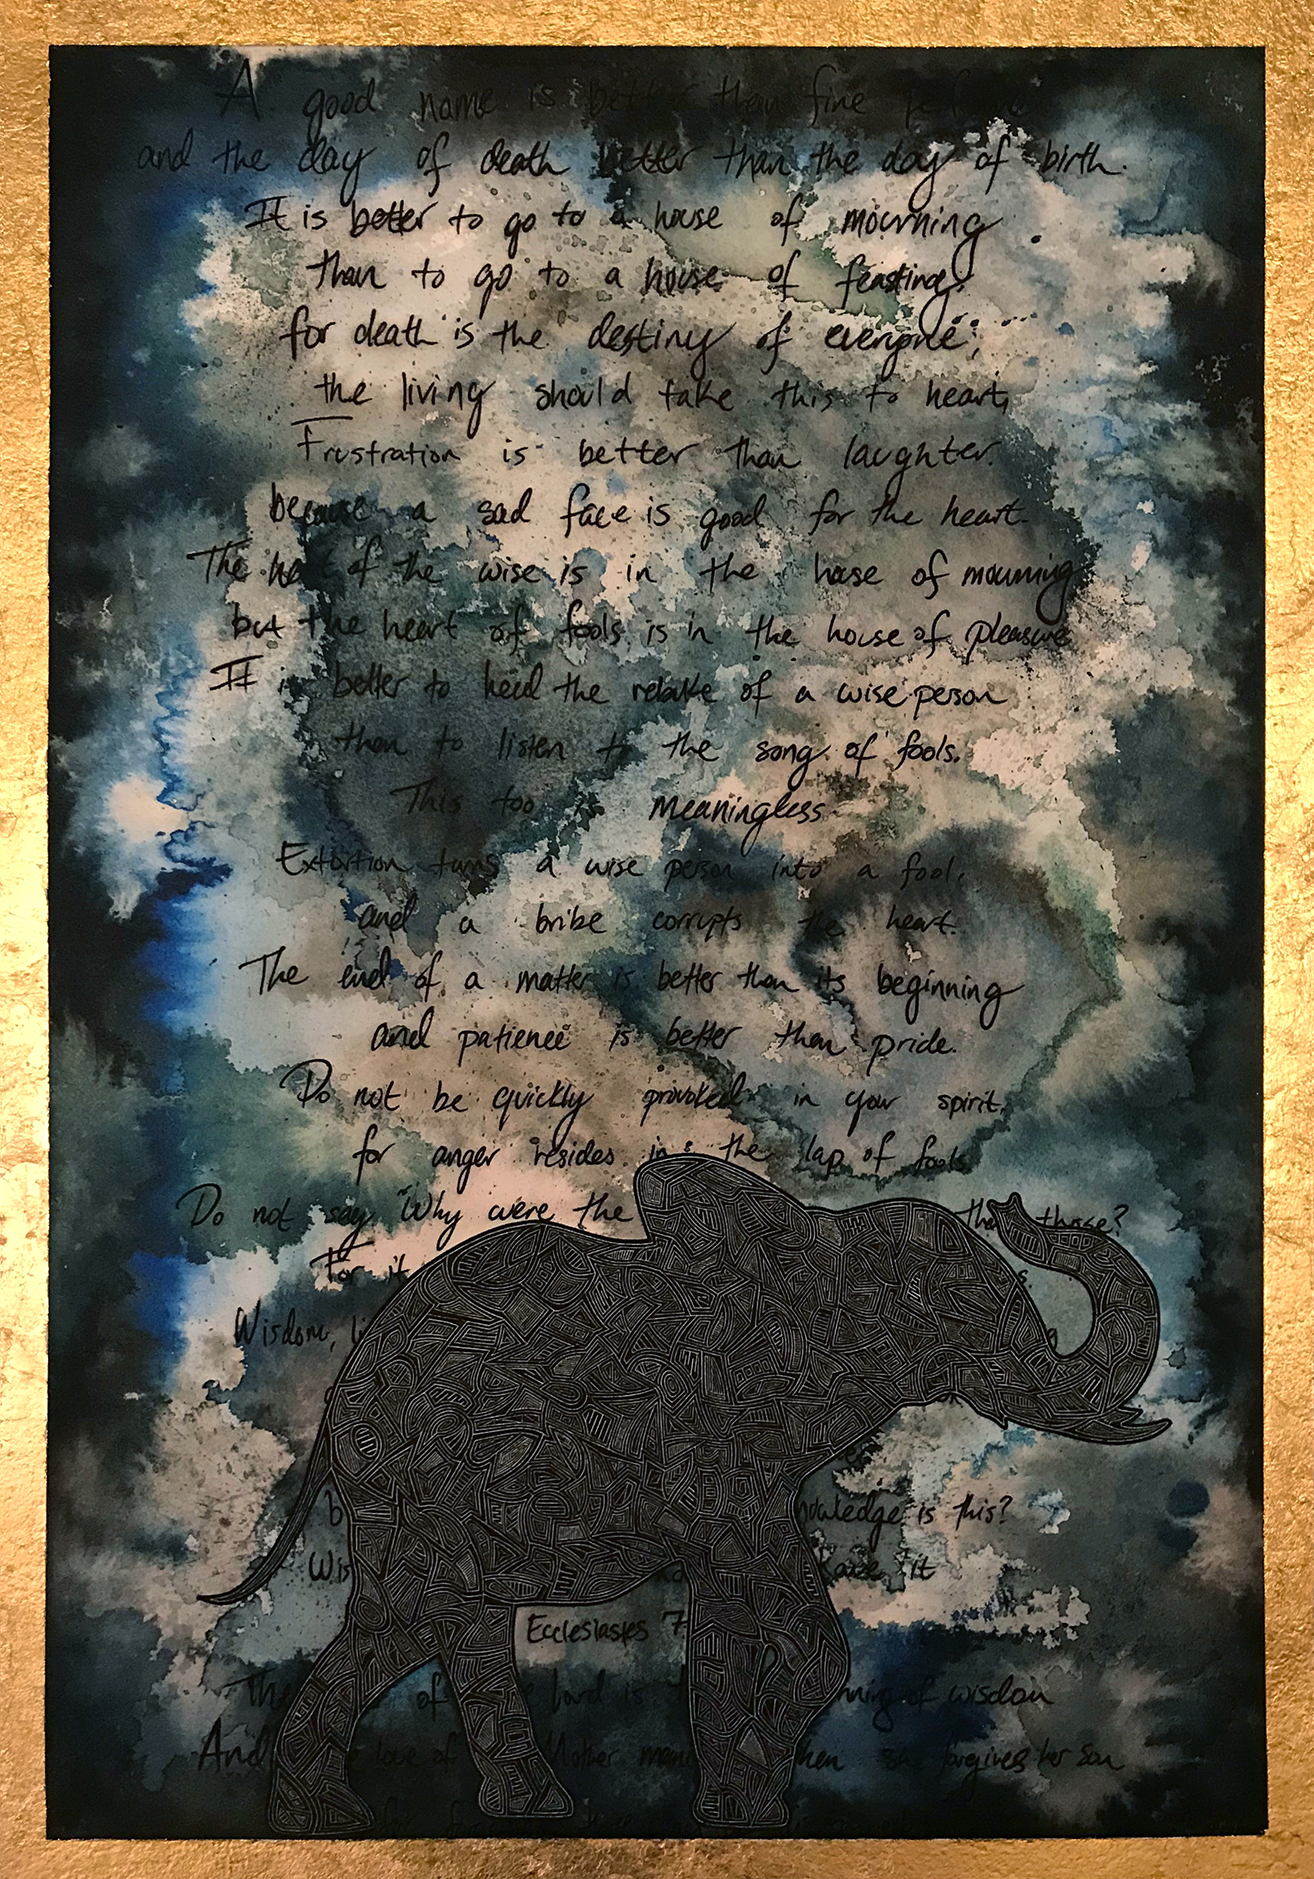 A good name is better than fine
and the day of death better than the day of birth.
It is better to go to a house of mourning
than to go to a house of feasting,
for death is the destiny of everyone;
the living should take this to heart,
Frustration is better than laughter.
because a sad face is good for the heart.
The heart of the wise is in the house of mourning
but the heart of fools is in the house of pleasure
It is better to heed the rebuke of a wise person
than to listen to the song of fools.
This too is meaningless
Extortion turns a wise person into a fool,
and a bribe corrupts the heart.
The end of a matter is better than its beginning
and patience is better than pride.
Do not be quickly provoked in your spirit,
for anger resides in the lap of fools
Do not say "Why were the than these?
For it
Wisdom,
is this?
it
Ecclesiastes 7
of lord is of wisdom
And love of Mother when she forgives her son